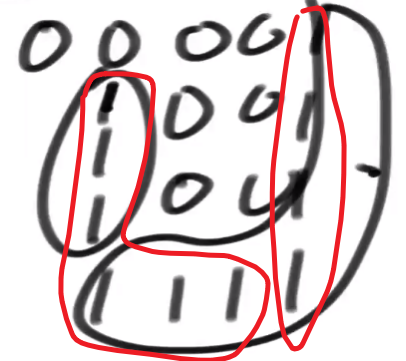 0 0 0 0 1
1 0 0 1
1
1 0 0 1
1 1 1 1